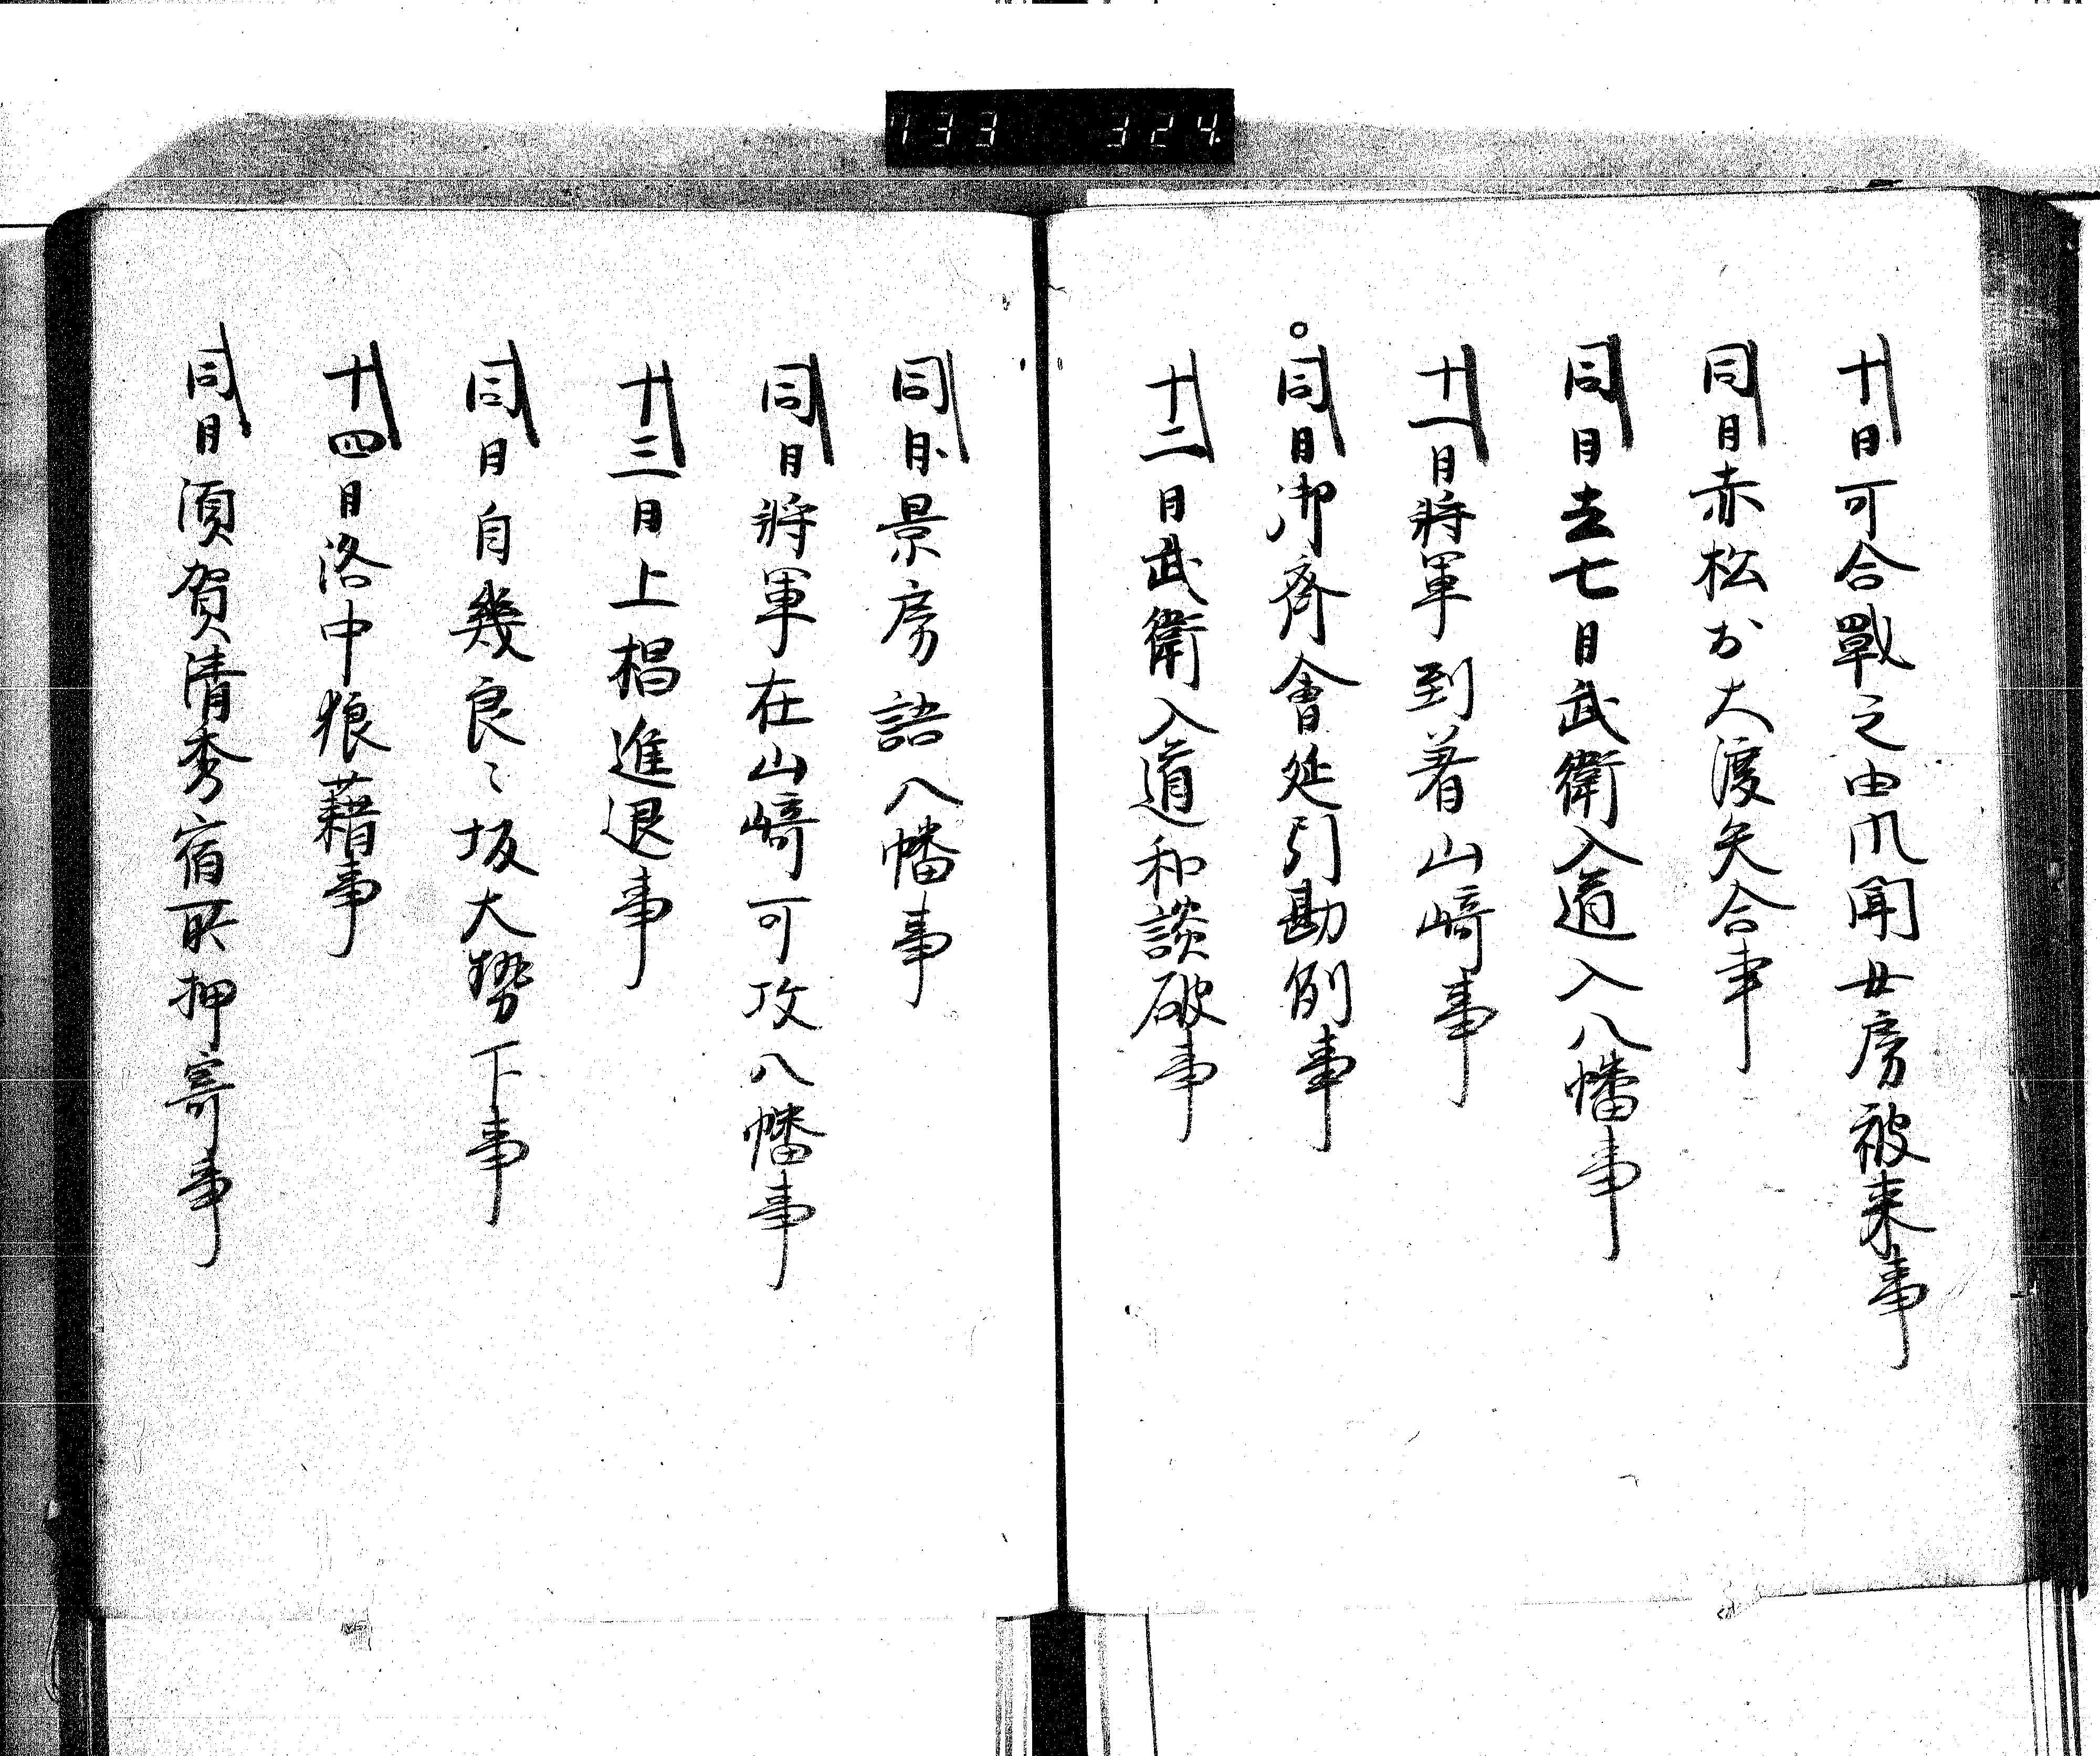 733 324
十日可合戰之由風聞女房被来事
同日赤松於大渡矢合事
同日去七日武衛入道入八幡事
十一日將軍到著山﨑事
同日御齊會延引勘例事
十二日武衛入道和談破事
同日景房語八幡事
同日將軍在山﨑可攻八幡事
十三日上椙進退事
同日自幾良〻坂大勢下事
十四日洛中狼藉事
同日須賀清秀宿所押寄事